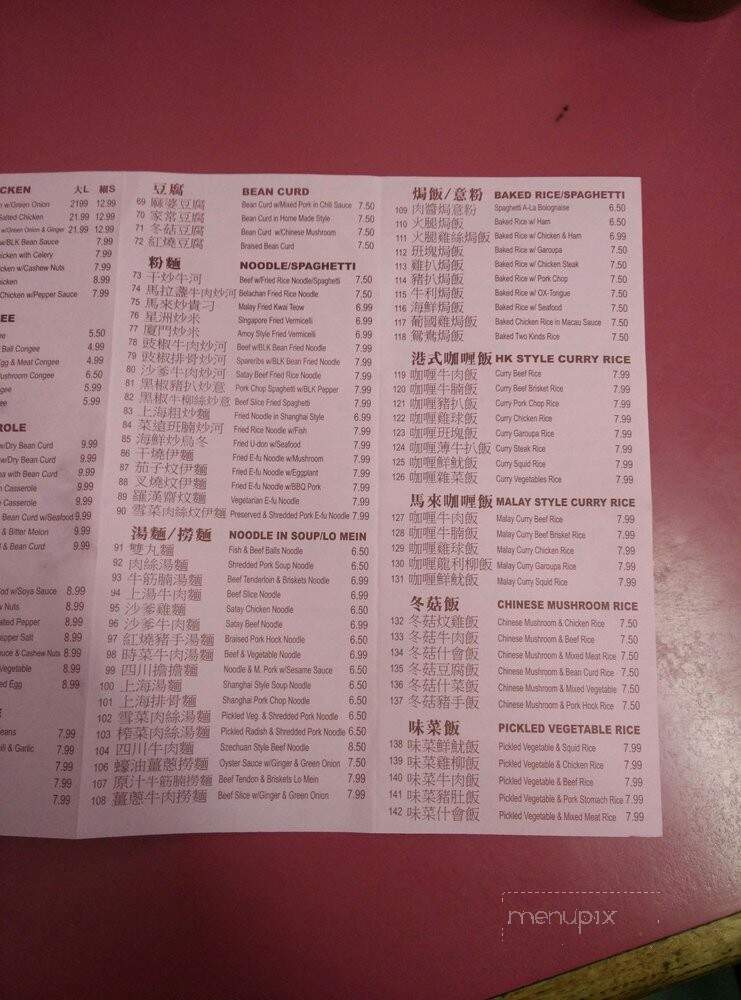 CKEN 大L 細S
n w/Green Onion 2199 12.99
Salted Chicken 21.99 12.99
w/Green Onion & Ginger 21.99 12.99
w/BLK Bean Sauce 7.99
hicken with Celery 7.99
icken w/Cashew Nuts 7.99
hicken 8.99
Chicken w/Pepper Sauce 7.99
EE
ee 5.50
Ball Congee 4.99
gg & Meat Congee 4.99
ushroom Congee 6.50
ngee 5.50
ngee 5.99
ROLE
w/Dry Bean Curd 9.99
w/Dry Bean Curd 9.99
ea with Bean Curd 9.99
n Casserole 9.99
e Casserole 9.99
Bean Curd w/Seafood 9.99
& Bitter Melon 9.99
d & Bean Curd 9.99
od w/Soya Sauce 8.99
w Nuts 8.99
ated Pepper 8.99
epper Salt 8.99
uce & Cashew Nuts 8.99
Vegetable 8.99
ed Egg 8.99
E
eans 7.99
ili & Garlic 7.99
7.99
7.99
7.99
豆腐 BEAN CURD
69 麻婆豆腐 Bean Curd w/Mixed Pork in Chili Sauce 7.50
70 家常豆腐 Bean Curd in Home Made Style 7.50
71 冬菇豆腐 Bean Curd w/Chinese Mushroom 7.50
72 紅燒豆腐 Braised Bean Curd 7.50
粉麵 NOODLE/SPAGHETTI
73 干炒牛河 Beef w/Fried Rice Noodle/Spaghetti 7.50
74 馬拉盞牛肉炒河 Belachan Fried Rice Noodle 7.50
75 馬來炒貴刁 Malay Fried Kwai Teow 6.99
76 星洲炒米 Singapore Fried Vermicelli 6.99
77 廈門炒米 Amoy Style Fried Vermicelli 6.99
78 豉椒牛肉炒河 Beef w/BLK Bean Fried Noodle 7.50
79 豉椒排骨炒河 Spareribs w/BLK Bean Fried Noodle 7.50
80 沙爹牛肉炒河 Satay Beef Fried Rice Noodle 7.50
81 黑椒豬扒炒意 Pork Chop Spaghetti w/BLK Pepper 7.50
82 黑椒牛柳絲炒意 Beef Slice Fried Spaghetti 7.99
83 上海粗炒麵 Fried Noodle in Shanghai Style 6.99
84 菜遠班腩炒河 Fried Rice Noodle w/Fish 7.99
85 海鮮炒烏冬 Fried U-don w/Seafood 7.99
86 干燒伊麵 Fried E-fu Noodle w/Mushroom 7.99
87 茄子炆伊麵 Fried E-fu Noodle w/Eggplant 7.99
88 叉燒炆伊麵 Fried E-fu Noodle w/BBQ Pork 7.99
89 羅漢齋炆麵 Vegetarian E-fu Noodle 7.99
90 雪菜肉絲炆伊麵 Preserved & Shredded Pork E-fu Noodle 7.99
湯麵/撈麵 NOODLE IN SOUP/LO MEIN
91 雙丸麵 Fish & Beef Balls Noodle 6.50
92 肉絲湯麵 Shredded Pork Soup Noodle 6.50
93 牛筋腩湯麵 Beef Tenderloin & Briskets Noodle 6.99
94 上湯牛肉麵 Beef Slice Noodle 6.50
95 沙爹雞麵 Satay Chicken Noodle 6.50
96 沙爹牛肉麵 Satay Beef Noodle 6.99
97 紅燒豬手湯麵 Braised Pork Hock Noodle 6.99
98 時菜牛肉湯麵 Beef & Vegetable Noodle 6.99
99 四川擔擔麵 Noodle & M. Pork w/Sesame Sauce 6.50
100 上海湯麵 Shanghai Style Soup Noodle 6.50
101 上海排骨麵 Shanghai Pork Chop Noodle 6.50
102 雪菜肉絲湯麵 Pickled Veg. & Shredded Pork Noodle 6.50
103 榨菜肉絲湯麵 Pickled Radish & Shredded Pork Noodle 6.50
104 四川牛肉麵 Szechuan Style Beef Noodle 8.50
106 蠔油薑蔥撈麵 Oyster Sauce w/Ginger & Green Onion 7.50
107 原汁牛筋腩撈麵 Beef Tendon & Briskets Lo Mein 7.99
108 薑蔥牛肉撈麵 Beef Slice w/Ginger & Green Onion 7.99
焗飯/意粉 BAKED RICE/SPAGHETTI
109 肉醬焗意粉 Spaghetti A-La Bolognaise 6.50
110 火腿焗飯 Baked Rice w/ Ham 6.50
111 火腿雞絲焗飯 Baked Rice w/ Chicken & Ham 6.99
112 班塊焗飯 Baked Rice w/ Garoupa 7.50
113 雞扒焗飯 Baked Rice w/ Chicken Steak 7.50
114 豬扒焗飯 Baked Rice w/ Pork Chop 7.50
115 牛利焗飯 Baked Rice w/ OX-Tongue 7.50
116 海鮮焗飯 Baked Rice w/ Seafood 7.50
117 葡國雞焗飯 Baked Chicken Rice in Macau Sauce 7.50
118 鴛鴦焗飯 Baked Two Kinds Rice 7.50
港式咖喱飯 HK STYLE CURRY RICE
119 咖喱牛肉飯 Curry Beef Rice 7.99
120 咖喱牛腩飯 Curry Beef Brisket Rice 7.99
121 咖喱豬扒飯 Curry Pork Chop Rice 7.99
122 咖喱雞球飯 Curry Chicken Rice 7.99
123 咖喱班塊飯 Curry Garoupa Rice 7.99
124 咖喱薄牛扒飯 Curry Steak Rice 7.99
125 咖喱鮮魷飯 Curry Squid Rice 7.99
126 咖喱雜菜飯 Curry Vegetables Rice 7.99
馬來咖喱飯 MALAY STYLE CURRY RICE
127 咖喱牛肉飯 Malay Curry Beef Rice 7.99
128 咖喱牛腩飯 Malay Curry Beef Brisket Rice 7.99
129 咖喱雞球飯 Malay Curry Chicken Rice 7.99
130 咖喱龍利柳飯 Malay Curry Garoupa Rice 7.99
131 咖喱鮮魷飯 Malay Curry Squid Rice 7.99
冬菇飯 CHINESE MUSHROOM RICE
132 冬菇炆雞飯 Chinese Mushroom & Chicken Rice 7.50
133 冬菇牛肉飯 Chinese Mushroom & Beef Rice 7.50
134 冬菇什會飯 Chinese Mushroom & Mixed Meat Rice 7.50
135 冬菇豆腐飯 Chinese Mushroom & Bean Curd Rice 7.50
136 冬菇什菜飯 Chinese Mushroom & Mixed Vegetable 7.50
137 冬菇豬手飯 Chinese Mushroom & Pork Hock Rice 7.50
味菜飯 PICKLED VEGETABLE RICE
138 味菜鮮魷飯 Pickled Vegetable & Squid Rice 7.99
139 味菜雞柳飯 Pickled Vegetable & Chicken Rice 7.99
140 味菜牛肉飯 Pickled Vegetable & Beef Rice 7.99
141 味菜豬肚飯 Pickled Vegetable & Pork Stomach Rice 7.99
142 味菜什會飯 Pickled Vegetable & Mixed Meat Rice 7.99
menupix